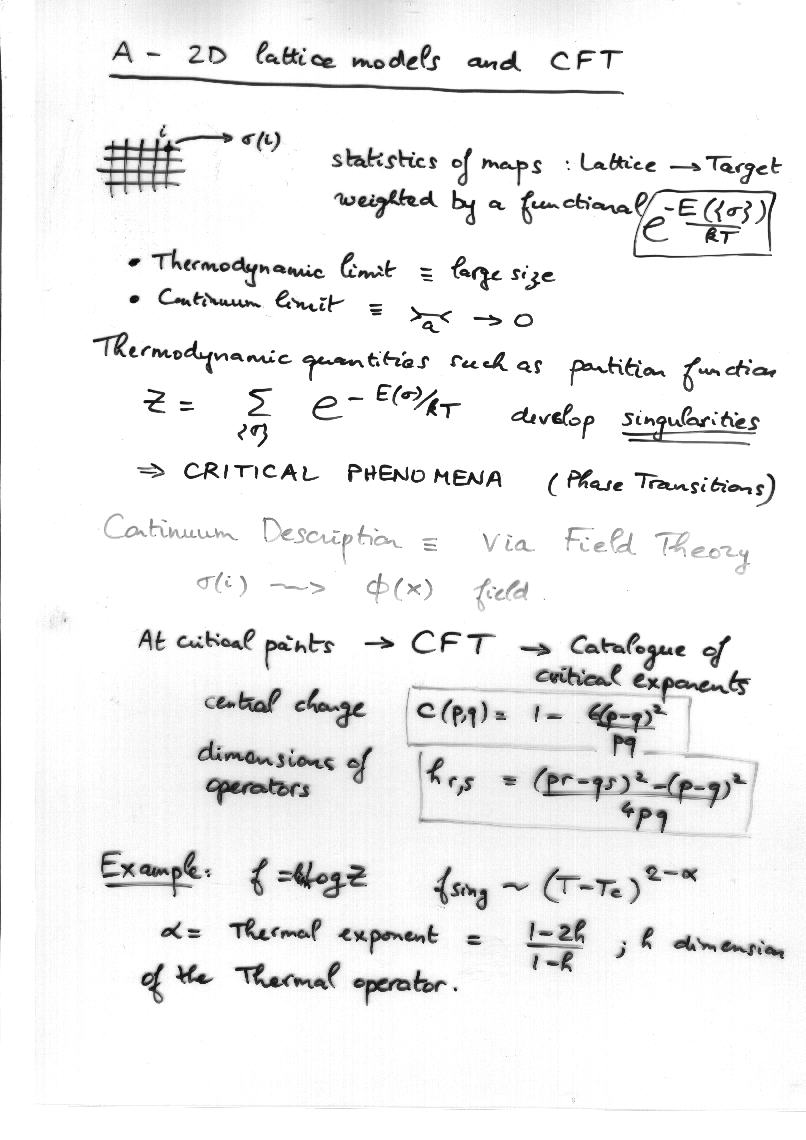 A - 2D lattice models and CFT
i → σ(i)
statistics of maps : Lattice → Target
weighted by a functional e^{-E({σ})/kT}
• Thermodynamic limit ≡ large size
• Continuum limit ≡ >a< → 0
Thermodynamic quantities such as partition function
Z = Σ_{{σ}} e^{-E(σ)/kT} develop singularities
⇒ CRITICAL PHENOMENA (Phase Transitions)
Continuum Description ≡ Via Field Theory
σ(i) ⟿ φ(x) field.
At critical points → CFT → Catalogue of
critical exponents
central charge c(p,q) = 1 - 6(p-q)²/pq
dimensions of
operators h_{r,s} = (pr-qs)²-(p-q)²/4pq
Example: f = log Z f_sing ~ (T-Tc)^{2-α}
α = Thermal exponent = 1-2h/1-h ; h dimension
of the Thermal operator.